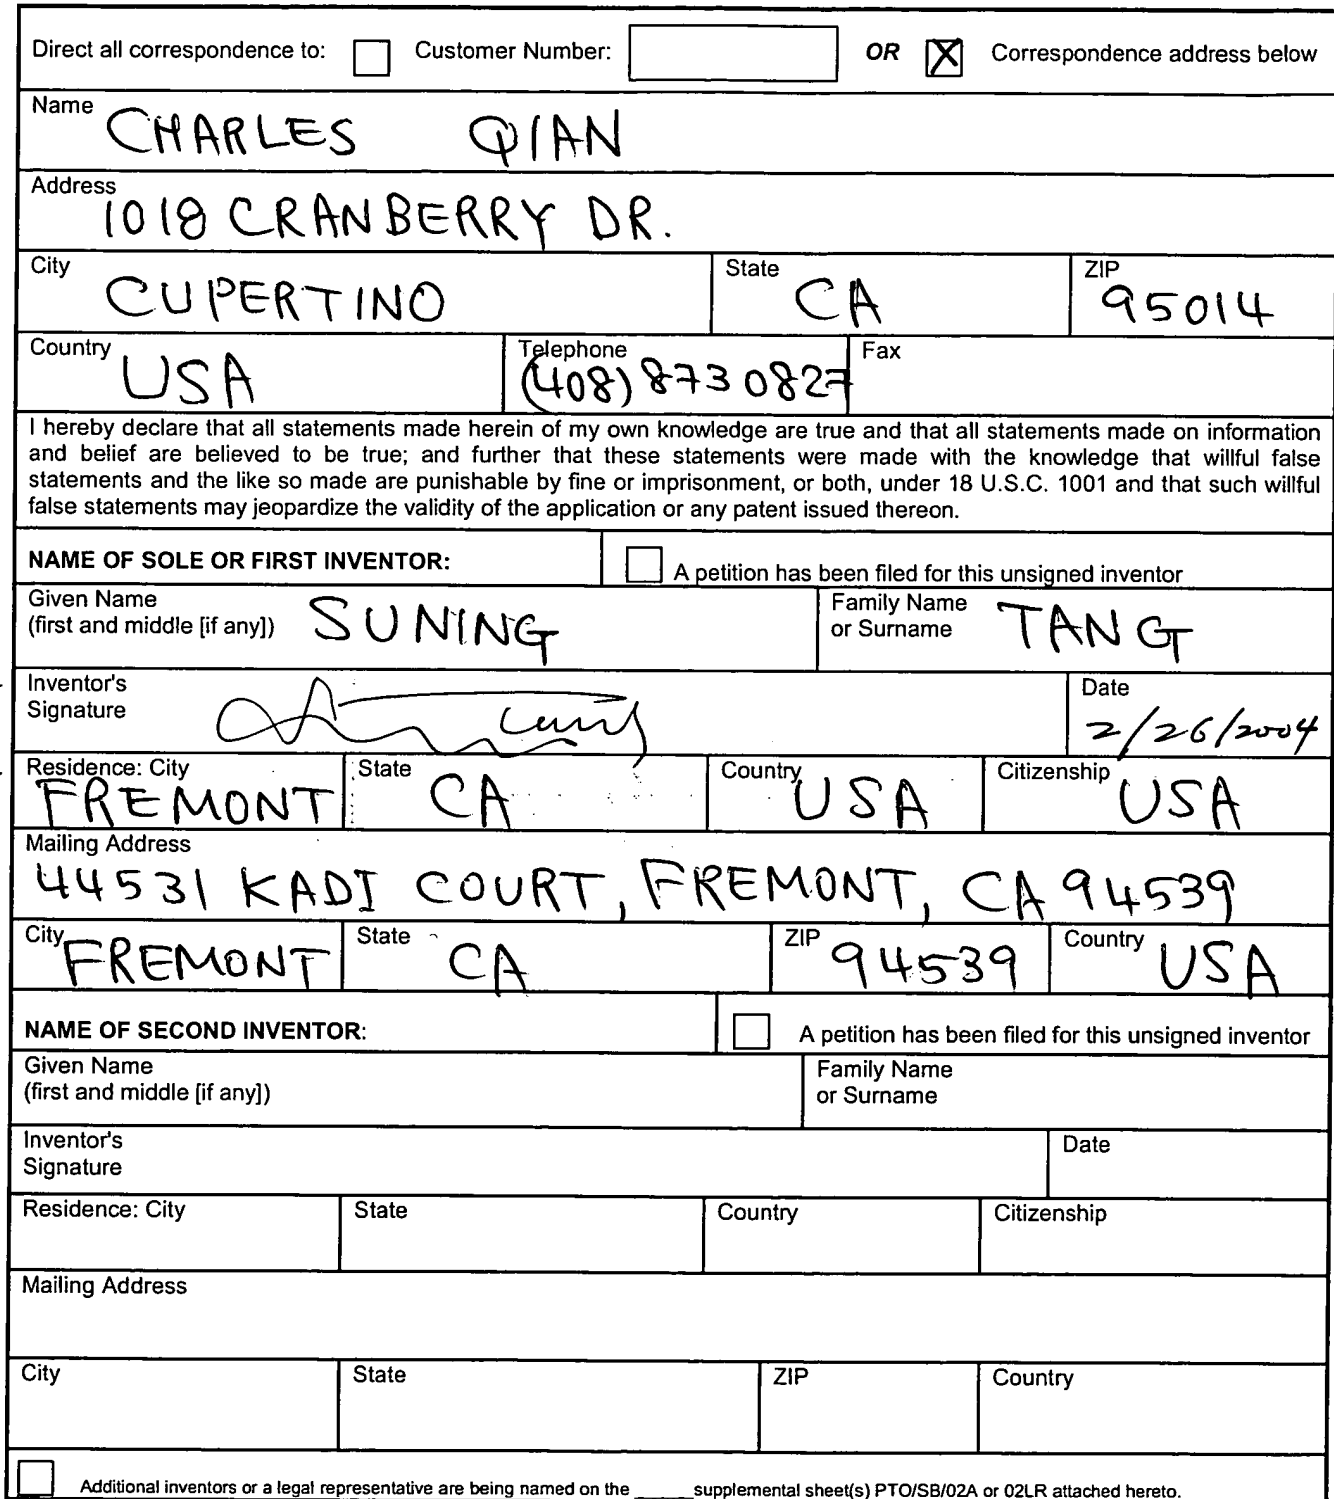 Direct all correspondence to: Customer Number: OR X Correspondence address below
Name CHARLES QIAN
Address 1018 CRANBERRY DR.
City CUPERTINO State CA ZIP 95014
Country USA Telephone (408) 873 0827 Fax
I hereby declare that all statements made herein of my own knowledge are true and that all statements made on information
and belief are believed to be true; and further that these statements were made with the knowledge that willful false
statements and the like so made are punishable by fine or imprisonment, or both, under 18 U.S.C. 1001 and that such willful
false statements may jeopardize the validity of the application or any patent issued thereon.
NAME OF SOLE OR FIRST INVENTOR: A petition has been filed for this unsigned inventor
Given Name Family Name
(first and middle [if any]) SUNING or Surname TANG
Inventor's Date
Signature 2/26/2004
Residence: City FREMONT State CA Country USA Citizenship USA
Mailing Address
44531 KADI COURT, FREMONT, CA 94539
City FREMONT State CA ZIP 94539 Country USA
NAME OF SECOND INVENTOR: A petition has been filed for this unsigned inventor
Given Name Family Name
(first and middle [if any]) or Surname
Inventor's Date
Signature
Residence: City State Country Citizenship
Mailing Address
City State ZIP Country
Additional inventors or a legal representative are being named on the _____ supplemental sheet(s) PTO/SB/02A or 02LR attached hereto.